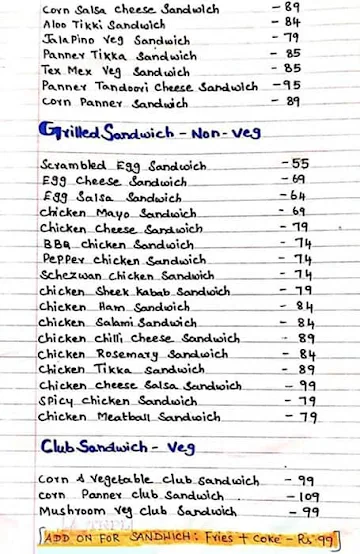 Corn Salsa Cheese Sandwich - 89
Aloo Tikki Sandwich - 84
Jalapino Veg Sandwich - 79
Panner Tikka Sandwich - 85
Tex Mex Veg Sandwich - 85
Panner Tandoori Cheese Sandwich - 95
Corn Panner Sandwich - 89
Grilled Sandwich - Non-Veg
Scrambled Egg Sandwich - 55
Egg Cheese Sandwich - 69
Egg Salsa Sandwich - 64
Chicken Mayo Sandwich - 69
Chicken Cheese Sandwich - 79
BBQ Chicken Sandwich - 74
Pepper Chicken Sandwich - 74
Schezwan Chicken Sandwich - 74
Chicken Sheek Kabab Sandwich - 79
Chicken Ham Sandwich - 84
Chicken Salami Sandwich - 84
Chicken Chilli Cheese Sandwich - 89
Chicken Rosemary Sandwich - 84
Chicken Tikka Sandwich - 89
Chicken Cheese Salsa Sandwich - 99
Spicy Chicken Sandwich - 79
Chicken Meatball Sandwich - 79
Club Sandwich - Veg
Corn & Vegetable Club Sandwich - 99
Corn Panner Club Sandwich - 109
Mushroom Veg Club Sandwich - 99
[ADD ON FOR SANDWICH: Fries + Coke - Rs 99]